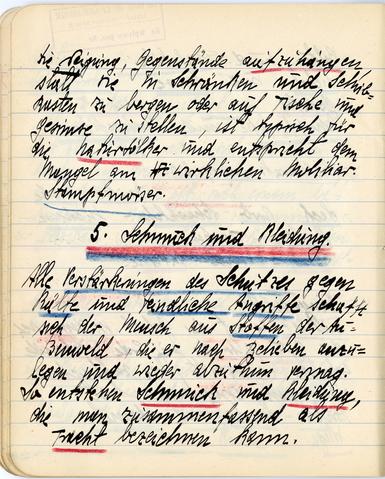 die Neigung, Gegenstände aufzuhängen
statt sie in Schränken und Schub-
kasten zu bergen oder auf Tische und
Gesimse zu stellen, ist typisch für
die Naturvölker und entspricht dem
Mangel am wirklichen Mobiliar.
Stampfmörser.
5. Schmuck und Kleidung.
Alle Verstärkungen des Schutzes gegen
Kälte und feindliche Angriffe schafft
sich der Mensch aus Stoffen der Au-
ßenwelt, die er nach Belieben anzu-
legen und wieder abzuthun vermag.
So entstehen Schmuck und Kleidung,
die man zusammenfassend als
Tracht bezeichnen kann.